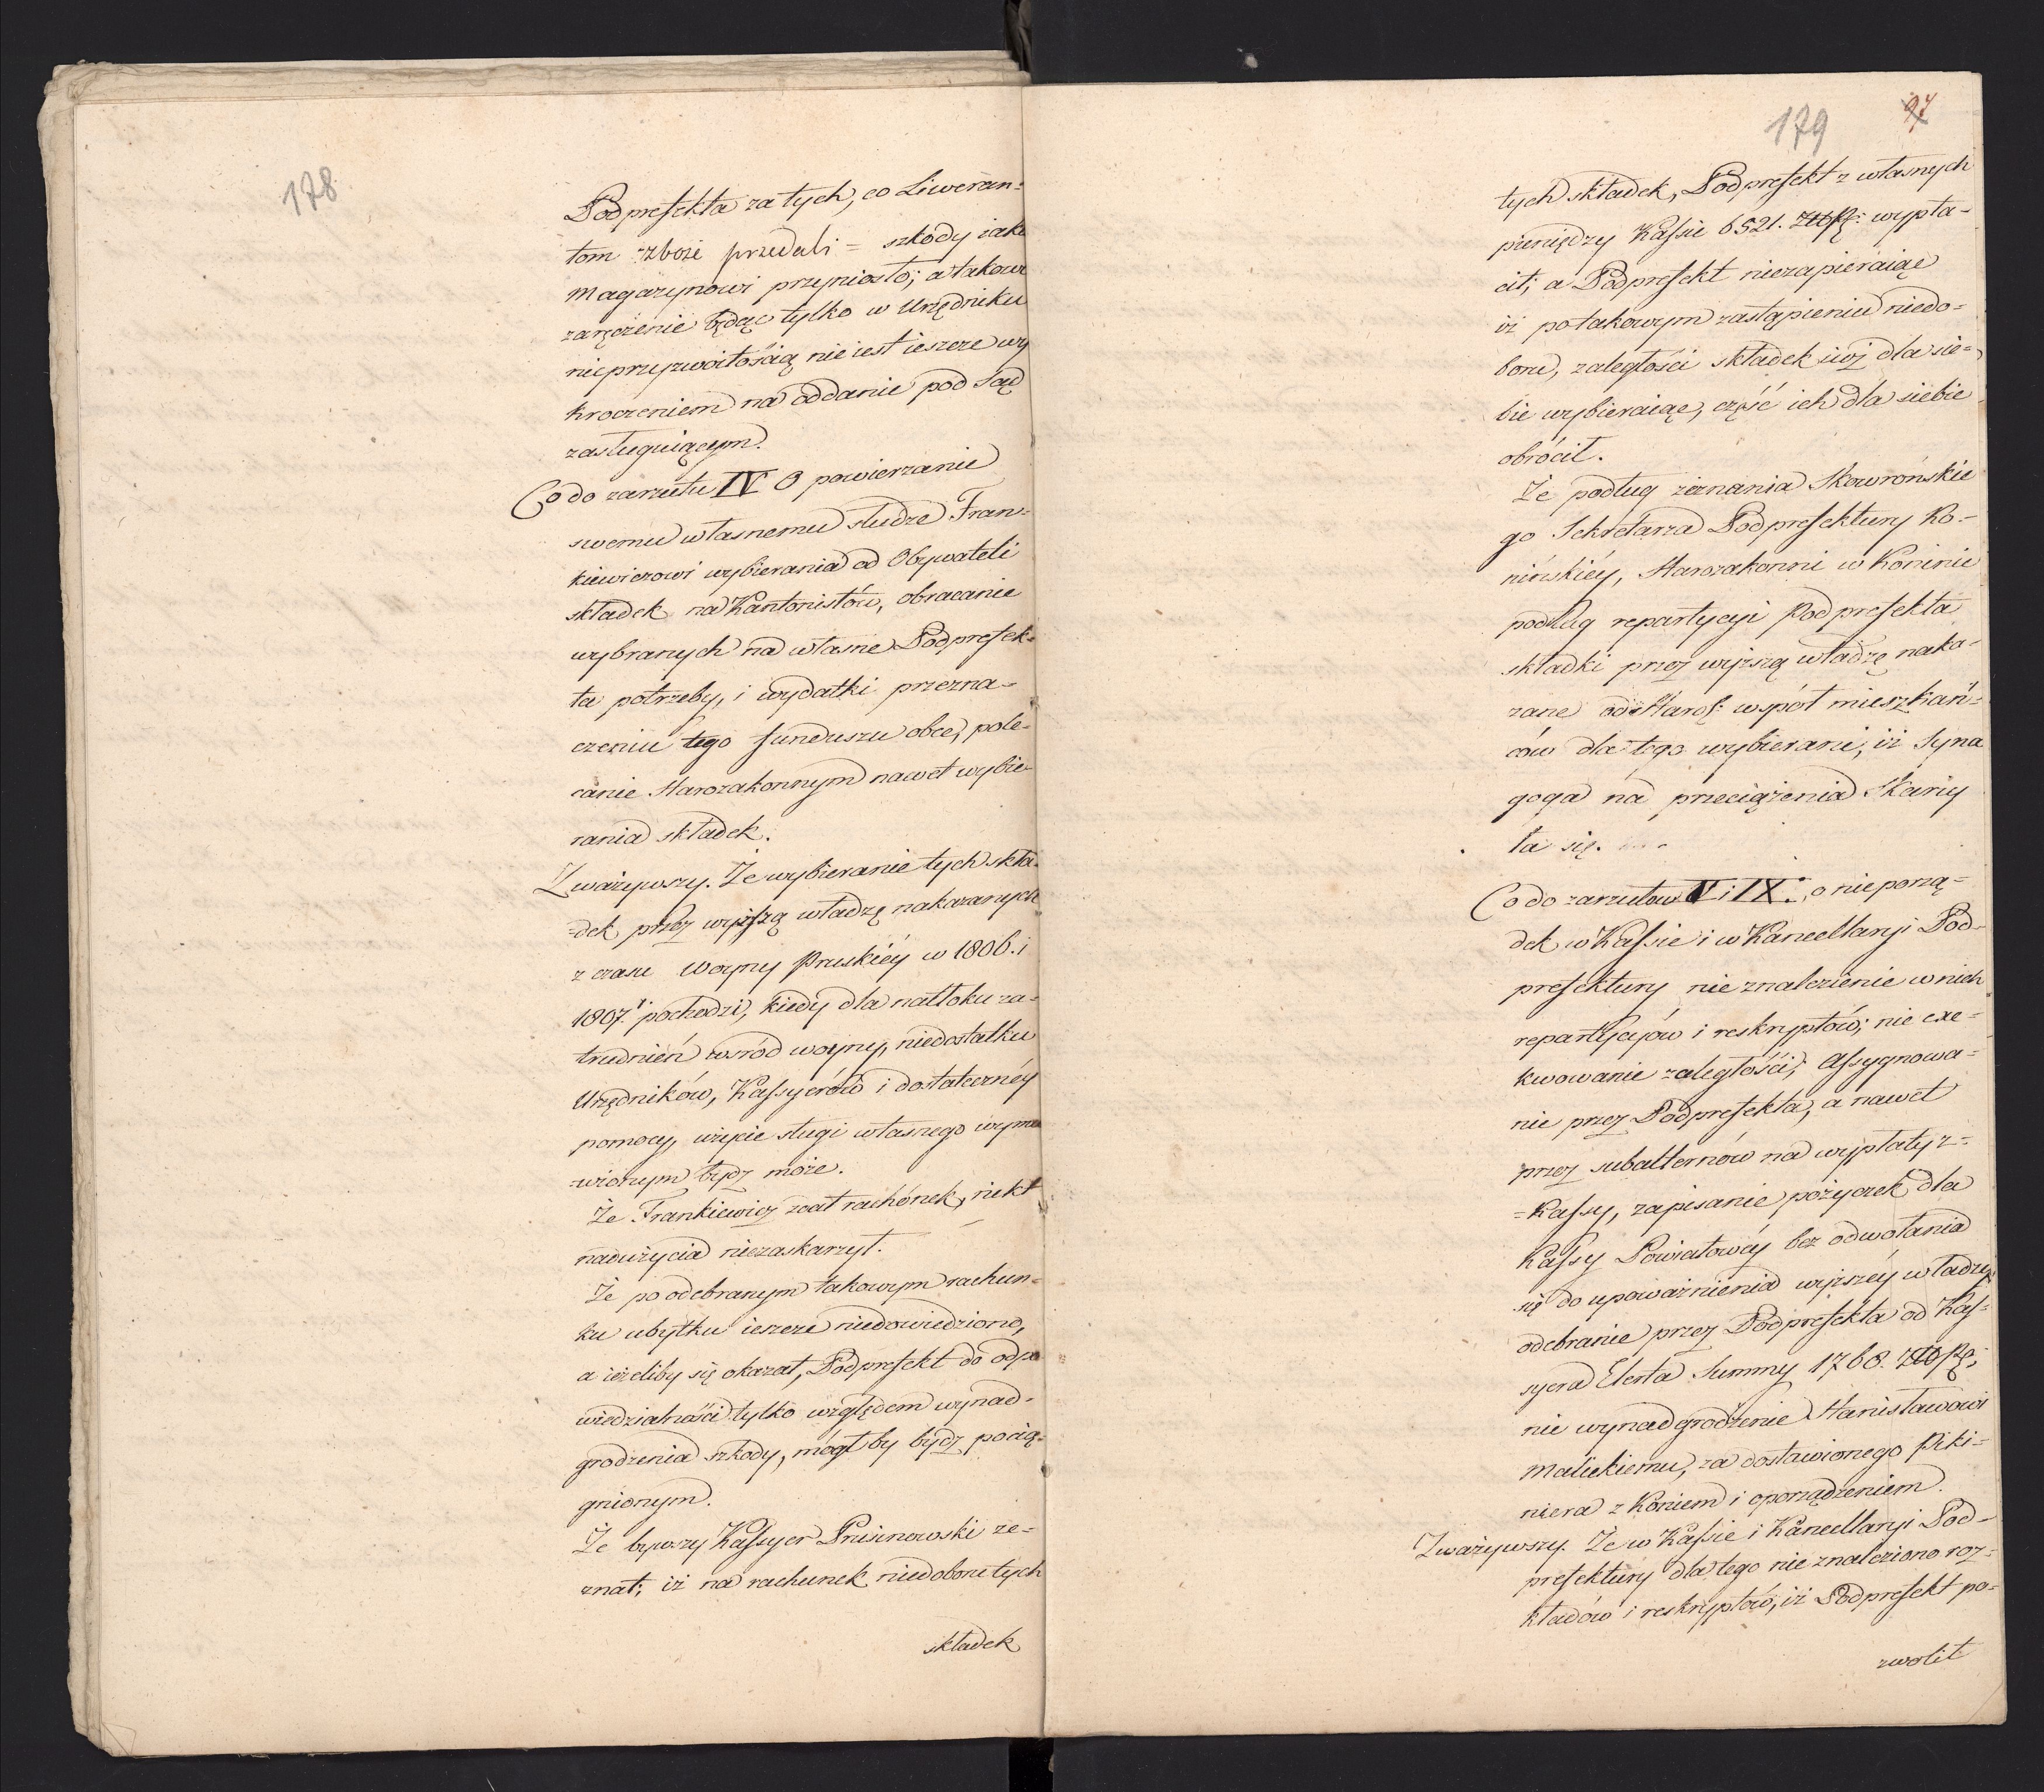 178
Podprefekta za tych, co Liweran-
tom zboże przedali = szkody iake
Magazynowi przyniosło; a takowe
zaręczenie będąc tylko w Urzędniku
nieprzyzwoitością nie iest ieszcze wy
kroczeniem na oddanie pod Sąd
zasługuiącym.
Co do zarzutu IV O powierzanie
swemu własnemu słudze Fran-
kiewiczowi wybierania od Obywateli
składek na Kantonistów, obracanie
wybranych na własne Podprefek-
ta potrzeby, i wydatki przezna-
czeniu tego funduszu obce, pole-
canie Starozakonnym nawet wybie-
rania składek.
Zważywszy. Że wybieranie tych skła-
dek przez wyższą władzę nakazanych
z czasu woyny Pruskiéy w 1806. i
1807. pochodzi, kiedy dla natłoku za-
trudnień wśród woyny, niedostatku
Urzędników, Kassyerów i dostatecznéy
pomocy, użycie sługi własnego wymó
wionym bydź może.
Że Frankiewicz zdał rachónek, nikt
nadużycia niezaskarzył.
Że po odebranym takowym rachun-
ku ubytku ieszcze niedowiedziono,
a ieżeliby się okazał, Podprefekt do odpo
wiedzialności tylko względem wynad-
grodzenia szkody, mógłby bydź pocią-
gnionym.
Że bywszy Kassyer Prisinowski ze-
znał; iż na rachunek niedoboru tych
składek
179
97
tych składek, Podprefekt z własnych
pieniędzy Kassie 6521. Złotp: wypła-
cił; a Podprefekt niezapieraiąc
iż po takowym zastąpieniu niedo-
boru, zaległości składek iuż dla sie-
bie wybieraiąc, część ich dla siebie
obrócił.
Że podług zeznania Skowrońskie
go Sekretarza Podprefektury Ko-
nińskiéy, Starozakonni w Koninie
podług repartycyi Podprefekta
składki przez wyższą władzę naka-
zane od Staroz: współ mieszkań-
ców dla tego wybierani, iż Syna
goga na przeciążenia Skarży
ła się.
Co do zarzutów V i IX. o nieporzą-
dek w Kassie i w Kancellaryi Pod-
prefektury nie znalezienie w nich
repartycyów i reskryptów; nie exe-
kwowanie zaległości; Assygnowa-
nie przez Podprefekta, a nawet
przez subalternów na wypłaty z-
=Kassy, zapisanie pożyczek dla
Kassy Powiatowéy bez odwołania
się do upoważnienia wyższéy władzy,
odebranie przez Podprefekta od Kas-
syera Elerta Summy 1768. Złotp;
nie wynadgrodzenie Stanisławowi
Malickiemu, za dostawionego Piki-
niera z Koniem i oporządzeniem.
Zważywszy. Że w Kassie i Kancellaryi Pod-
prefektury dla tego nie znaleziono roz-
kładów i reskryptów, iż Podprefekt po-
zwolił